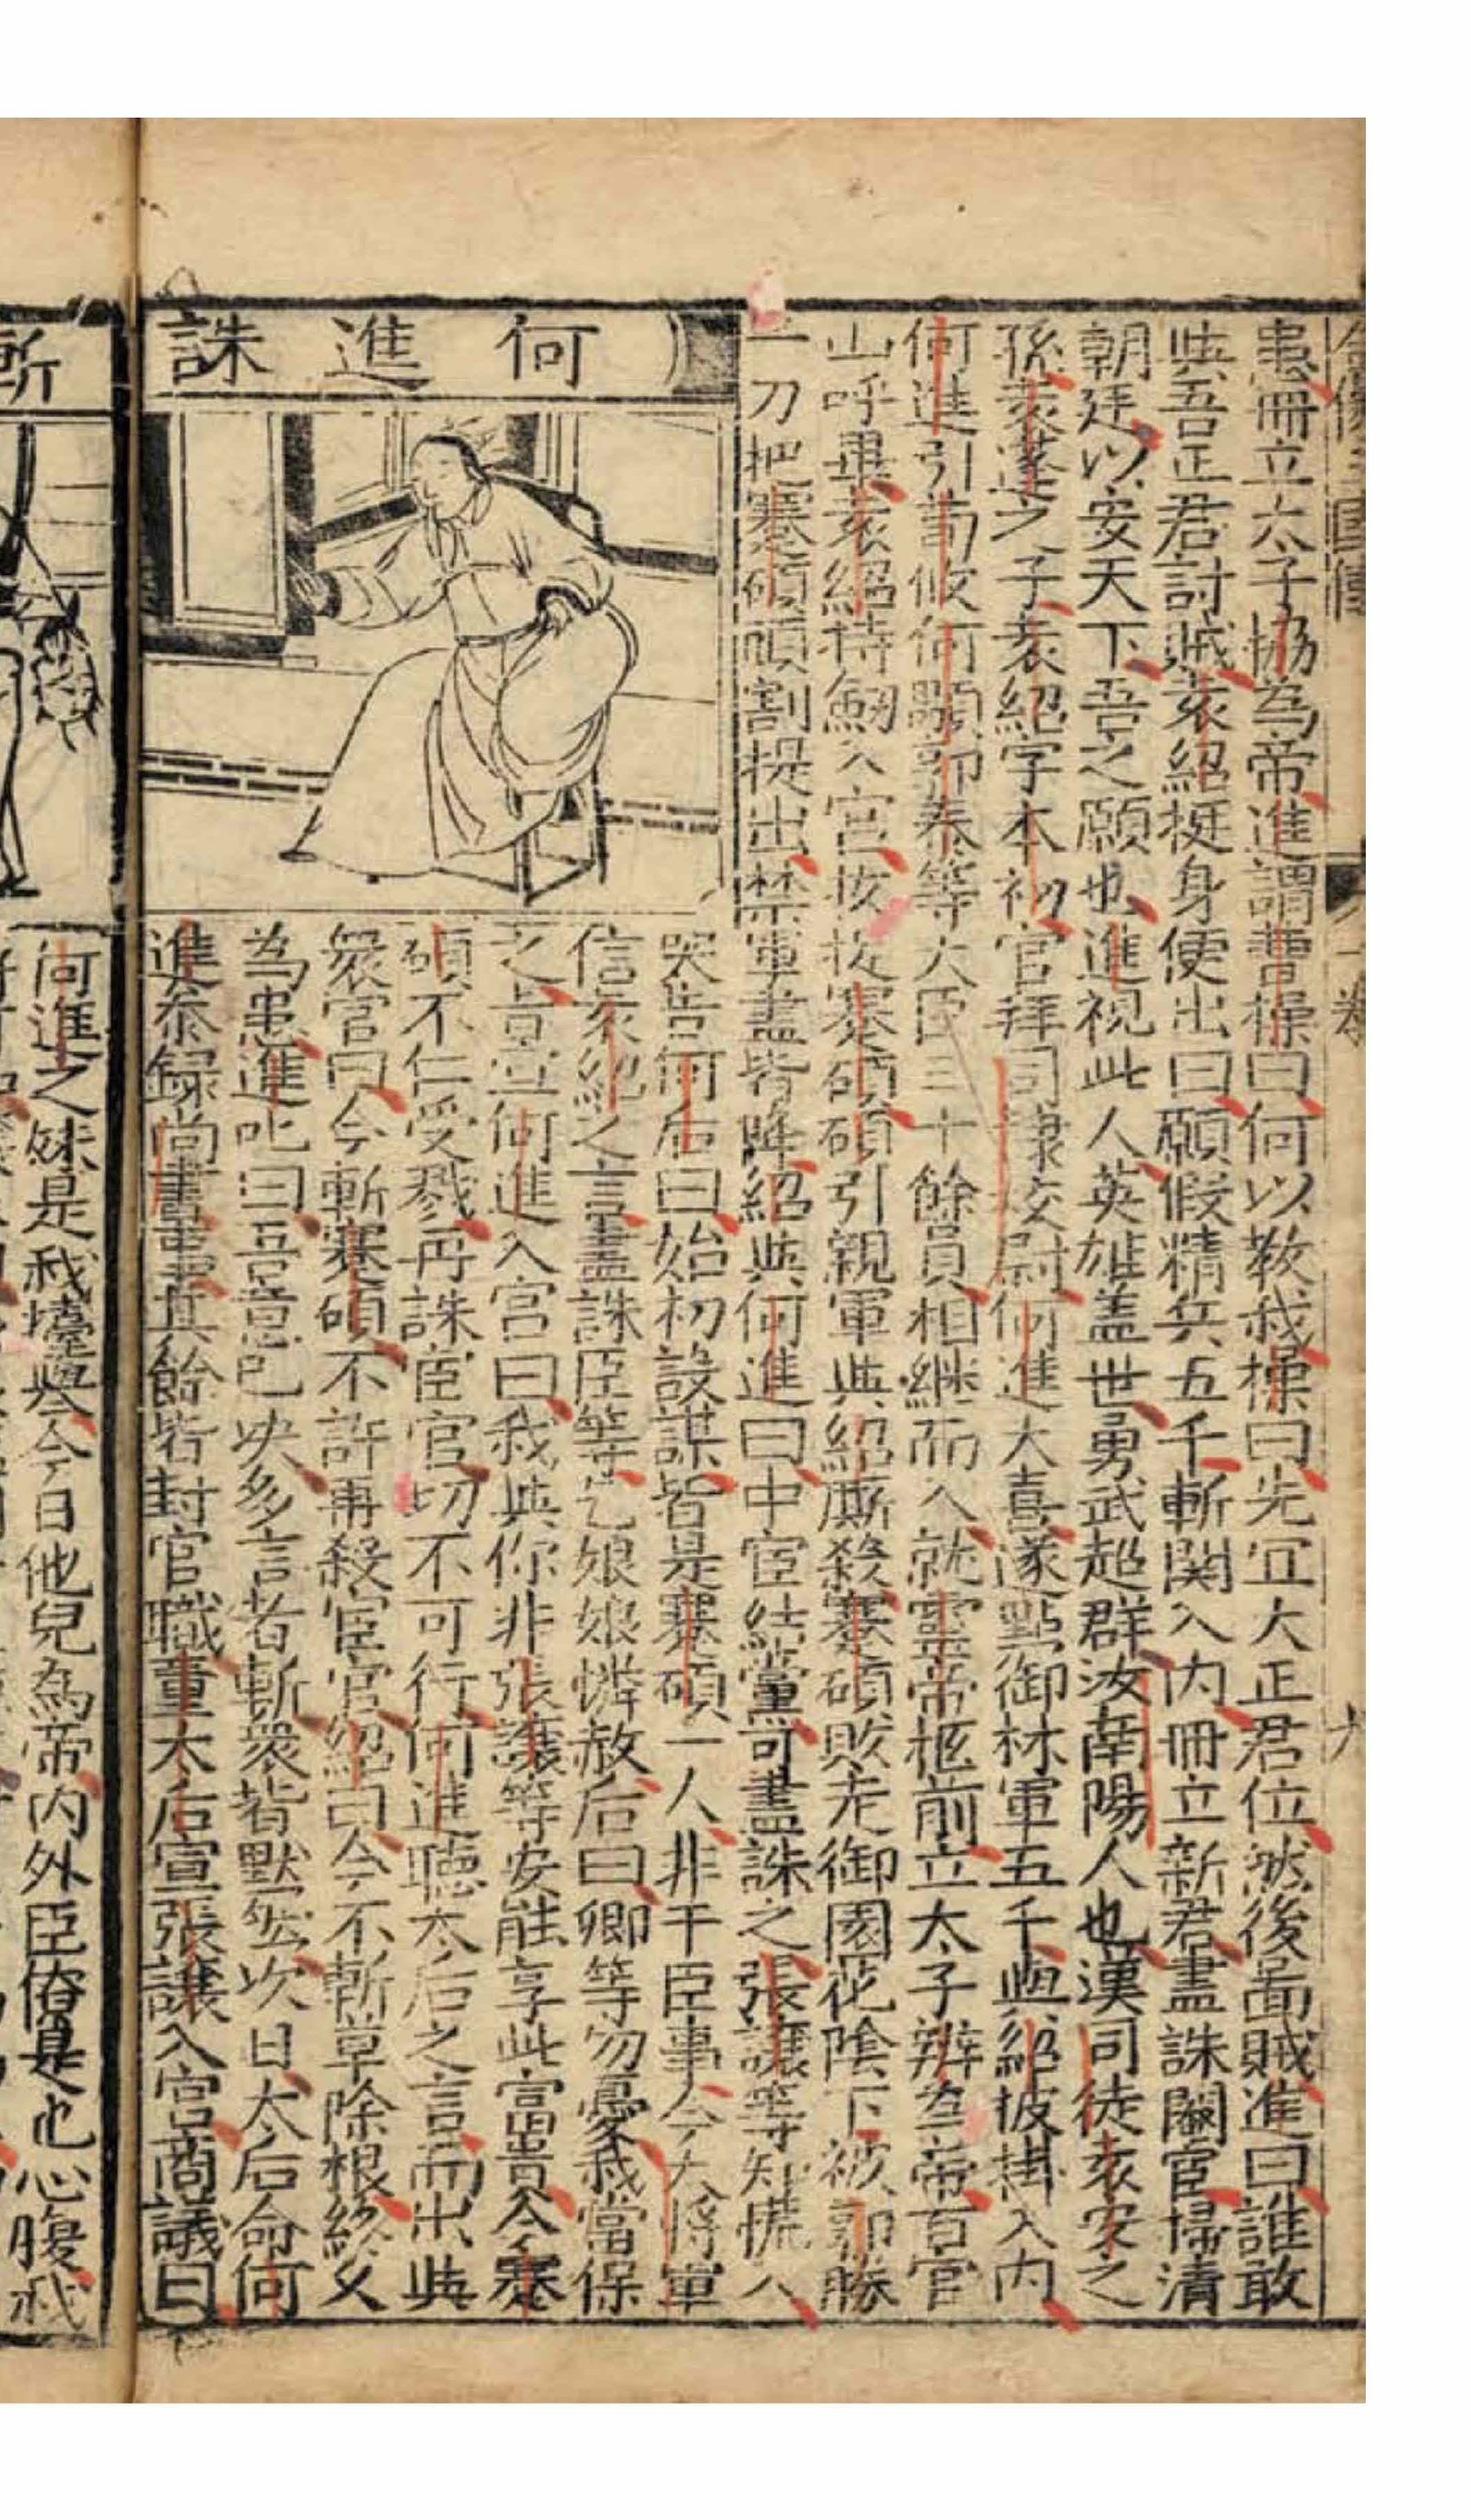 患冊立太子協為帝進謂曹操曰何以教我操曰先宜大正君位然後啚賊進曰誰敢
與吾正君討賊袁紹挺身便出曰願假精兵五千斬関入內冊立新君盡誅閹宦掃清
朝廷以安天下吾之願也進視此人英雄盖世勇武超群汝南陽人也漢司徒袁安之
孫袁逢之子袁紹字本初官拜司隷校尉何進大喜遂點御林軍五千與紹披掛入內
何進引荀攸何顒鄭泰等大臣三十餘員相継而入就靈帝柩前立太子辨為帝百官
山呼畢袁紹持劒入宮收捉蹇碩碩引親軍與紹厮殺蹇碩敗走御園花陰下被郭勝
一刀把蹇碩頭割提出禁軍盡皆降紹與何進曰中宦結黨可盡誅之張讓等知慌入
何進誅
哭告何后曰始初設謀皆是蹇碩一人非干臣事今大將軍
信袁紹之言盡誅臣等乞娘娘憐赦后曰卿等勿憂我當保
之旨宣何進入宮曰我與你非張讓等安能享此富貴今蹇
碩不仁受戮再誅宦官切不可行何進聽太后之言而出與
衆官曰今斬蹇碩不許再殺宦官紹曰今不斬草除根終久
為患進叱曰吾意已决多言者斬衆皆默然次日太后命何
進叅録尚書事其餘皆封官職董太后宣張讓入宮商議曰
斬
何進之妹是我擡舉今日他兒為帝內外臣僚是也心腹我